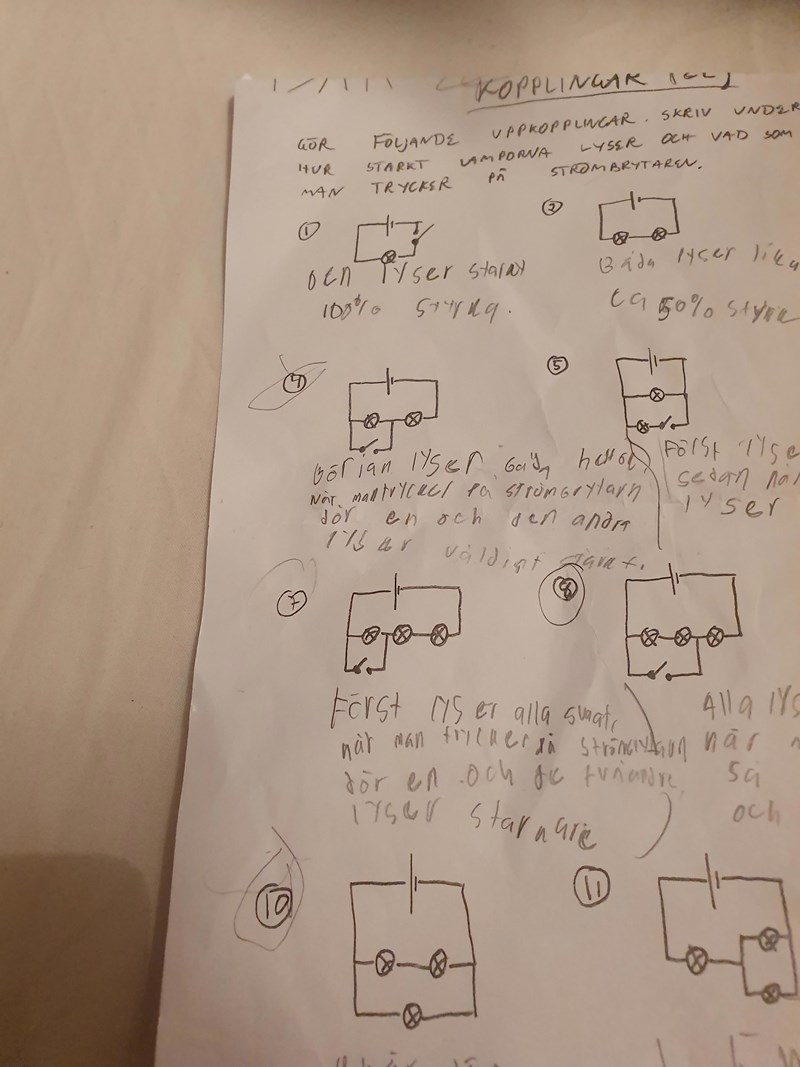 KOPPLINGAR
GÖR FÖLJANDE UPPKOPPLINGAR. SKRIV UNDER
HUR STARKT LAMPORNA LYSER OCH VAD SOM
MAN TRYCKER PÅ STRÖMBRYTAREN.
① ②
Den lyser starkt
100% styrka.
Båda lyser lika
ca 50% styrk
④ ⑤
Börjar lyser båda
När man trycker på strömbrytarn
dör en och den andra
lyser väldigt starkt.
Först lyse
sedan när
lyser
⑦ ⑧
Först lyser alla svagt,
när man trycker på strömbrytarn
dör en och de två andra
lyser starkare
Alla lys
när
så
och
⑩ ⑪